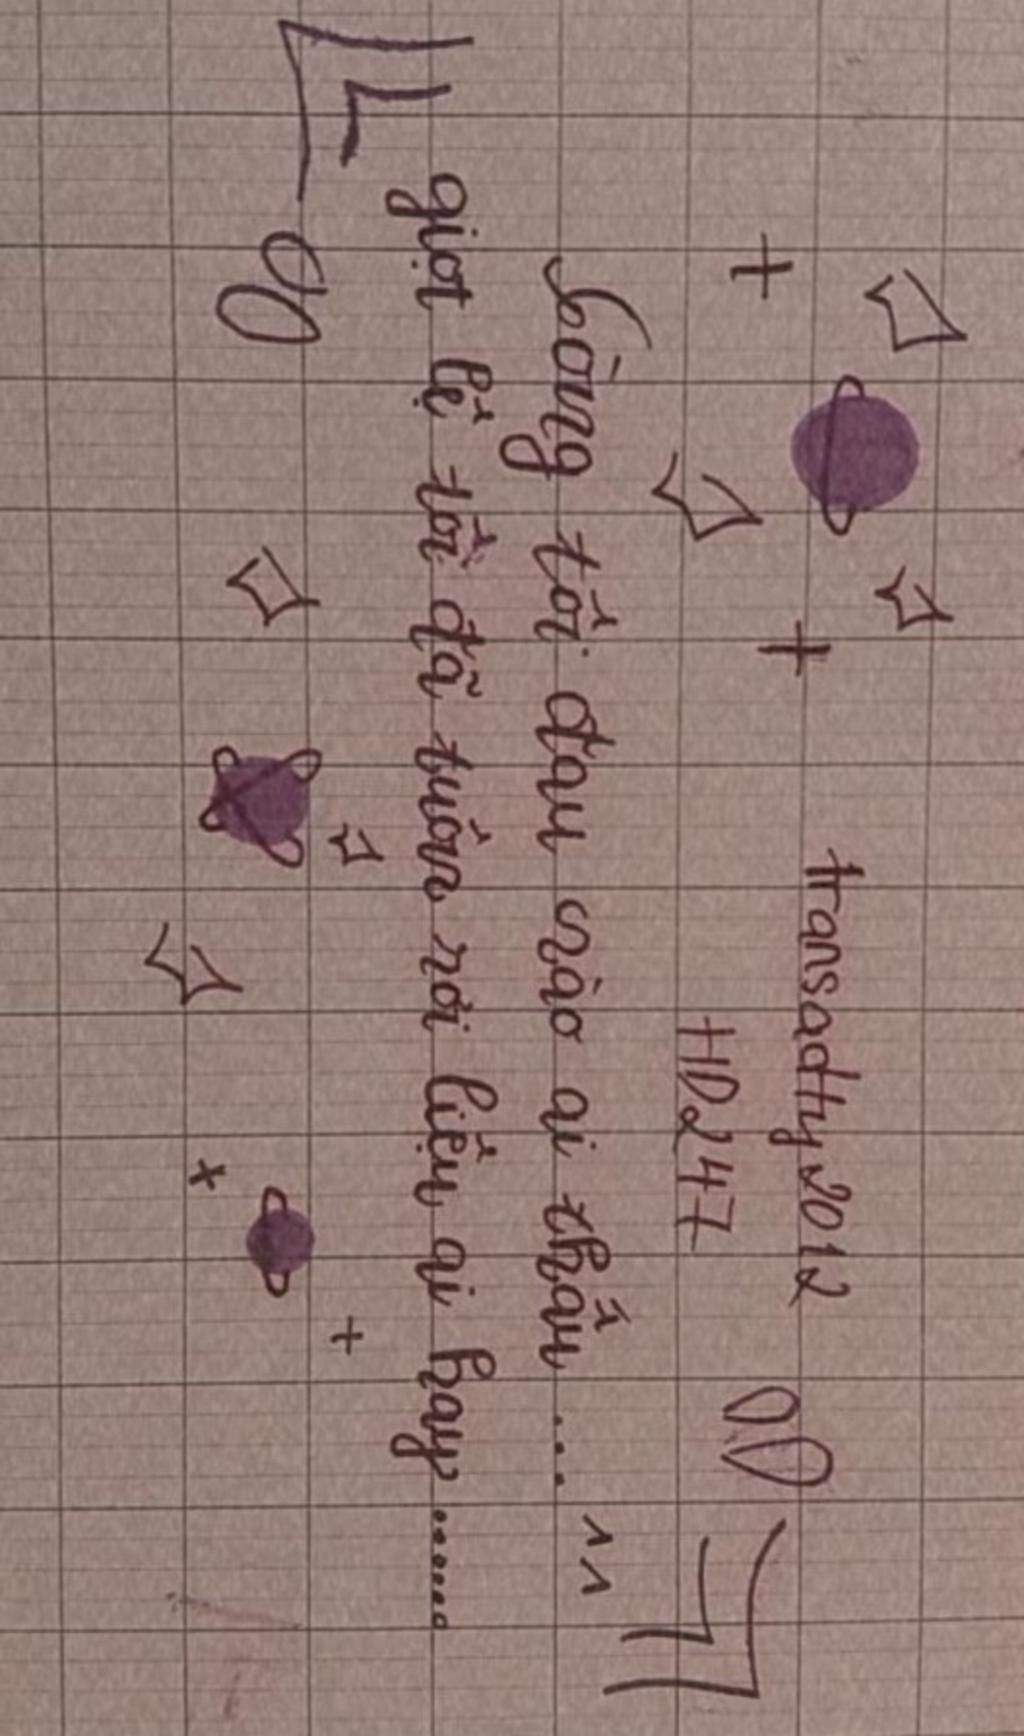 transadtty2012
HD247
Lòng tôi đau nào ai thấu ...
giọt lệ tôi đã tuôn rơi liệu ai hay ......